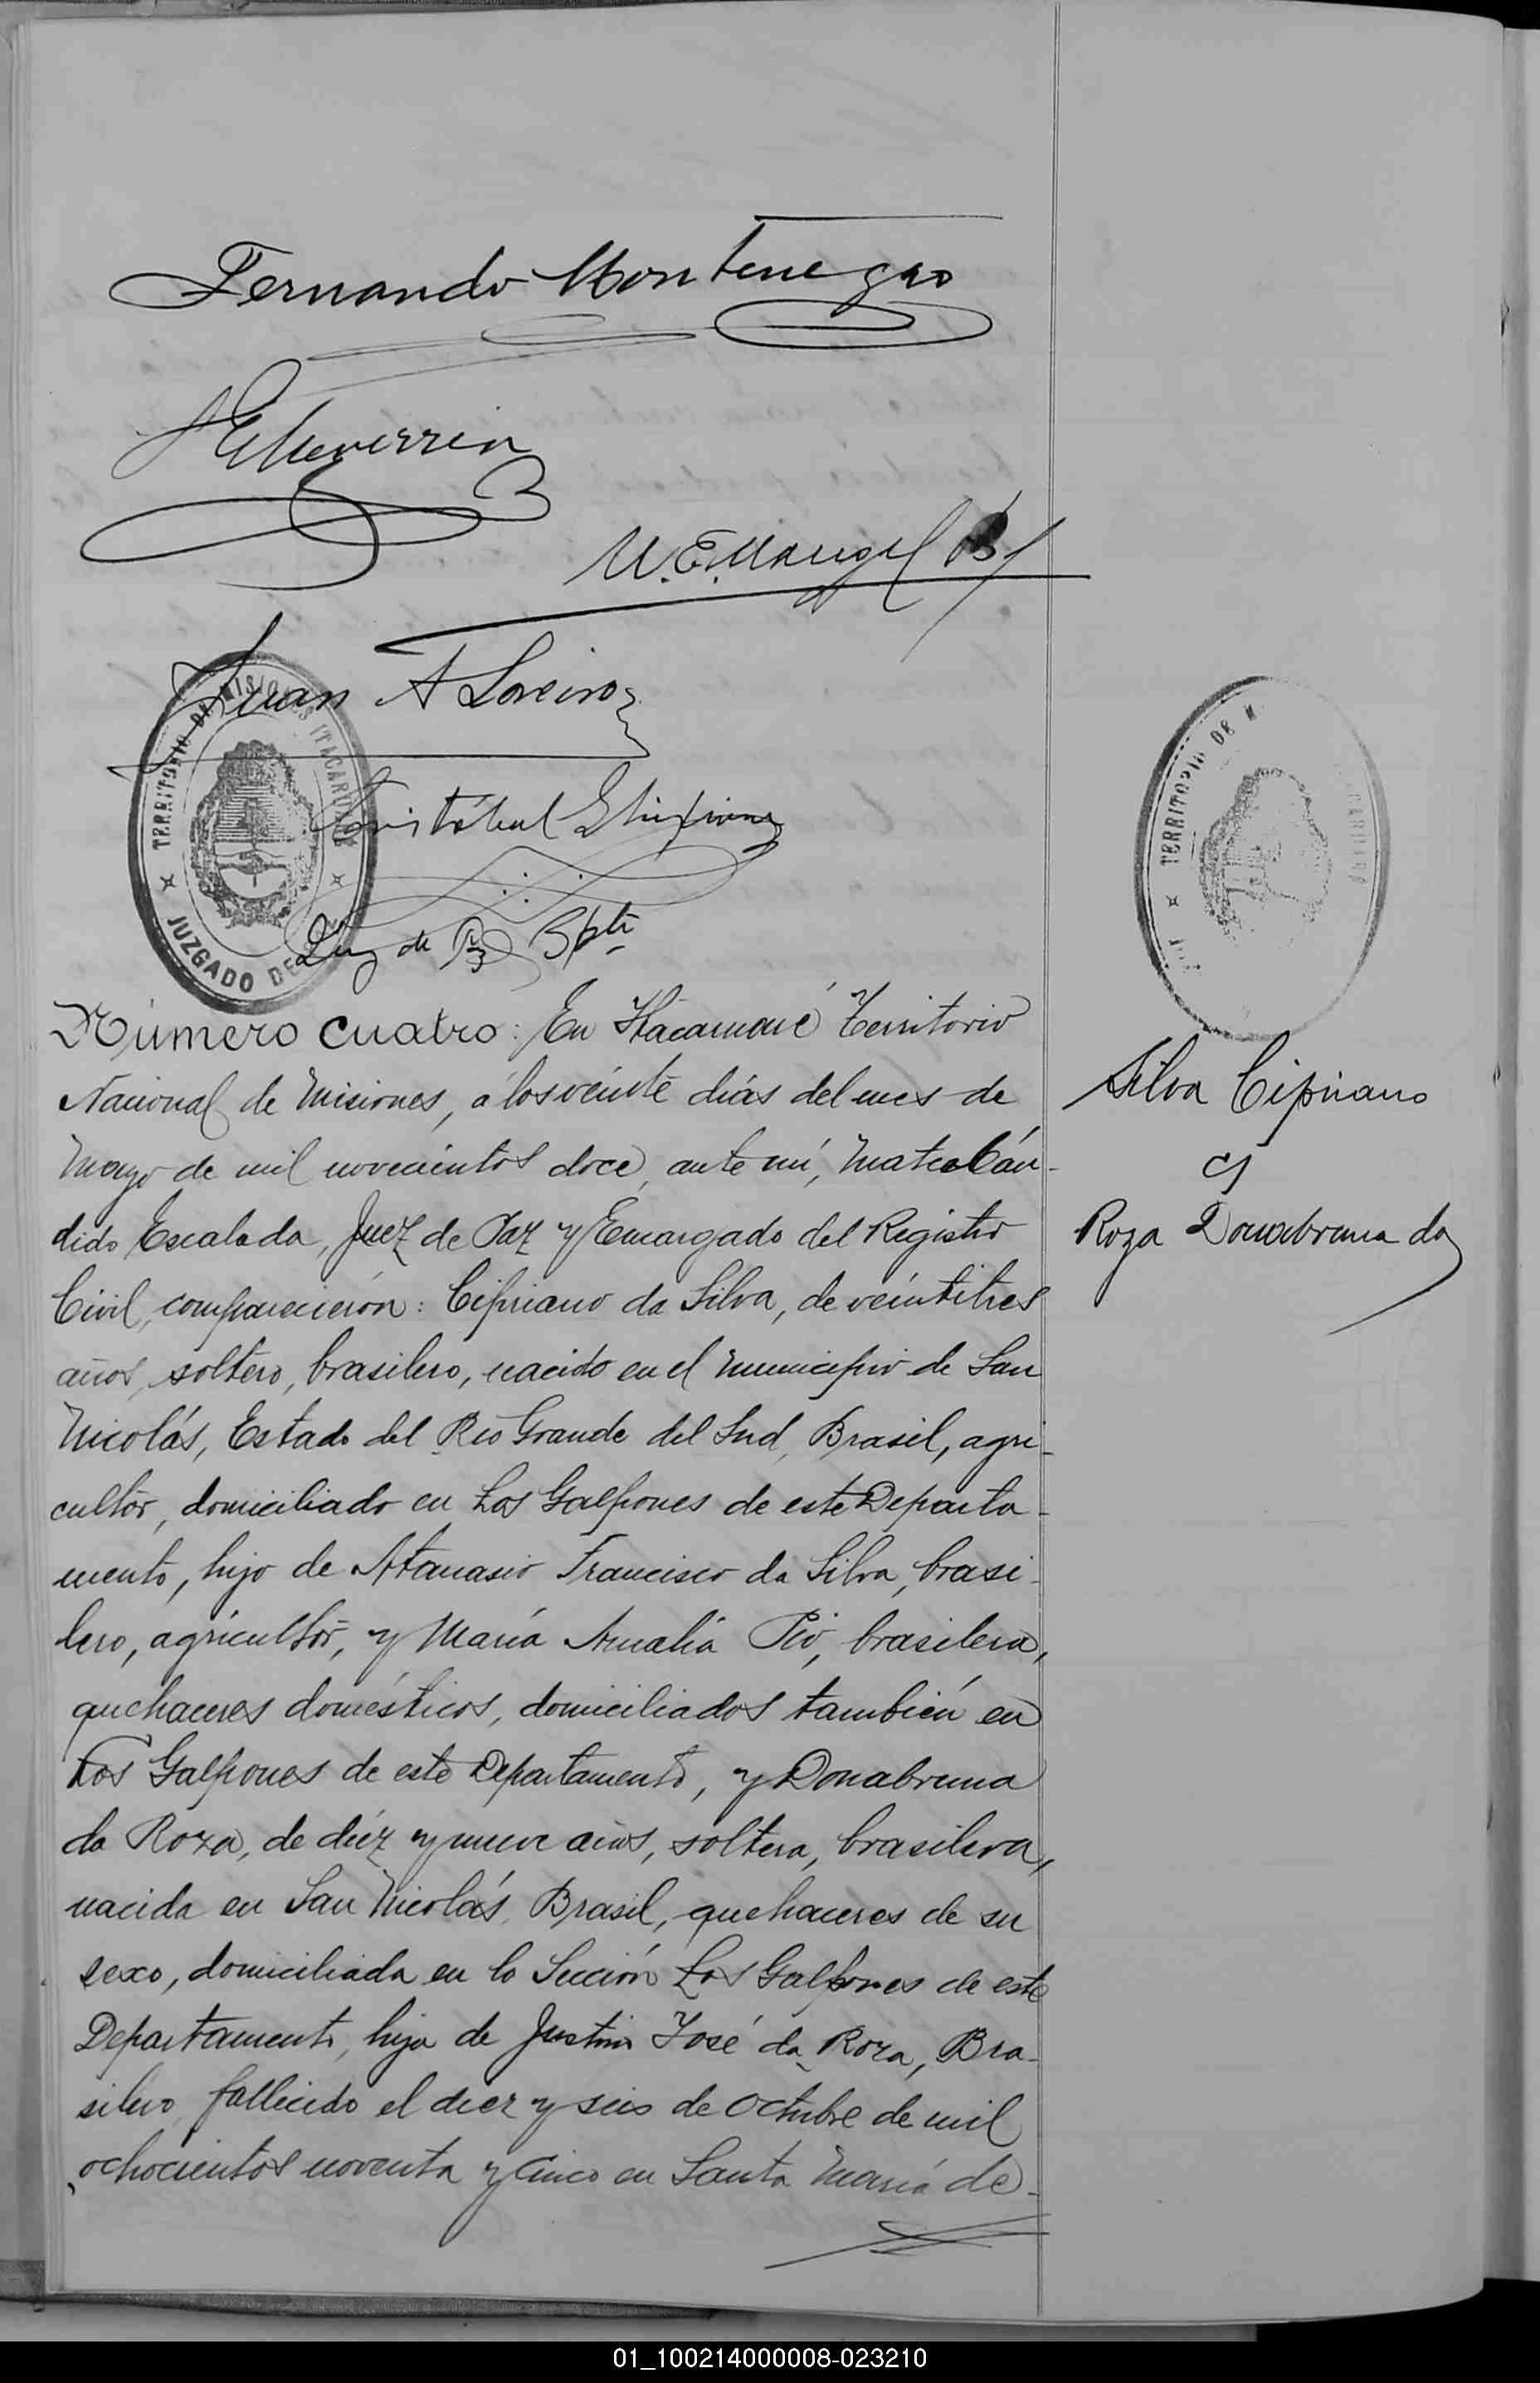 Fernando Montenegro
Echeverria
Juan A Loreiro
TERRITORIO DE MISIONES ITACARUARÉ
JUZGADO DE
Cristóbal
Juez de Paz Splte
Número cuatro: En Itacaruaré Territorio
Nacional de Misiones, á los veinte días del mes de
Mayo de mil novecientos doce, ante mí, Mateo Cán-
dido Escalada, Juez de Paz y Encargado del Registro
Civil, comparecieron: Cipriano da Silva, de veintitres
años, soltero, brasilero, nacido en el municipio de San
Nicolás, Estado del Rio Grande del Sud, Brasil, agri-
cultor, domiciliado en Los Galpones de este Departa-
mento, hijo de Atanasio Francisco da Silva, brasi-
lero, agricultor, y María Amalia Pio, brasilera,
quehaceres domésticos, domiciliados también en
Los Galpones de este Departamento, y Donabruna
da Roza, de diéz y nueve años, soltera, brasilera,
nacida en San Nicolás, Brasil, quehaceres de su
sexo, domiciliada en la Sección Los Galpones de este
Departamento, hija de Justino José da Roza, Bra-
silero, fallecido el diez y seis de Octubre de mil
ochocientos noventa y cinco en Santa María de-
TERRITORIO DE M
Silva Cipriano
c/
Roza Donabruna da
01_100214000008-023210